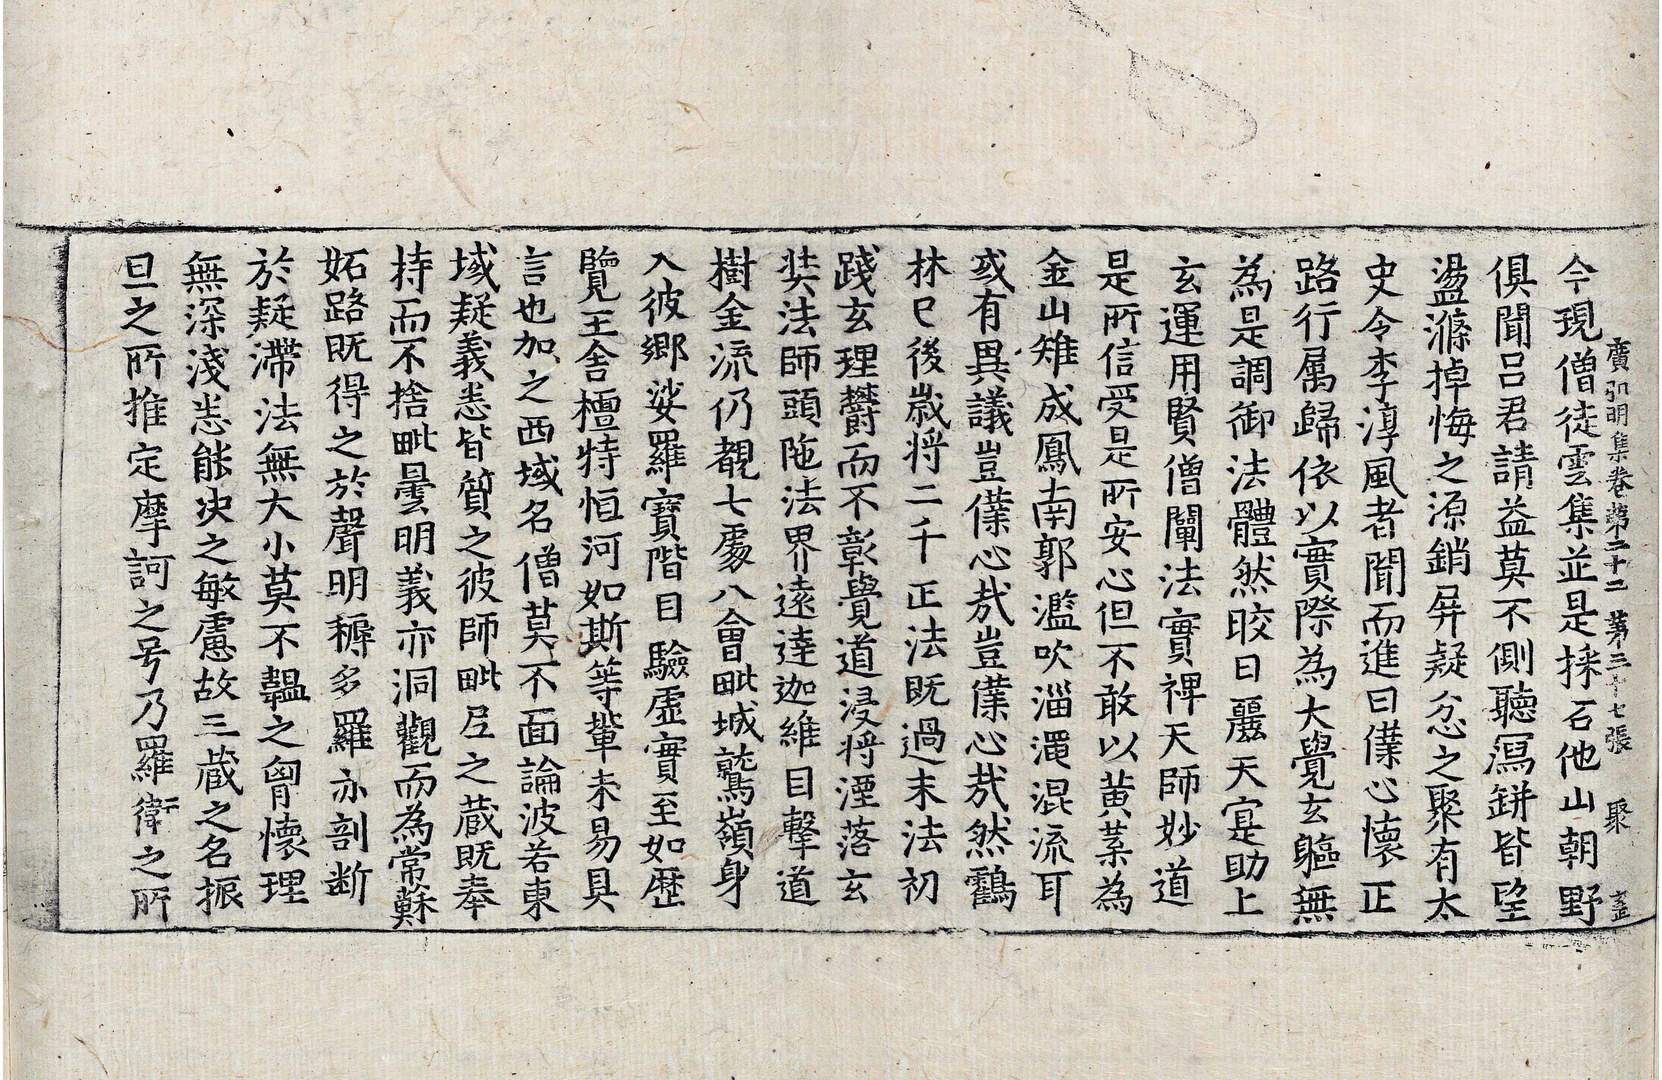 廣弘明集卷第二十二 第三十七張 聚
今現僧徒雲集並是採石他山朝野
俱聞呂君請益莫不側聽寫鉼皆望
盪滌掉悔之源銷屏疑忿之聚有太
史令李淳風者聞而進曰僕心懷正
路行属歸依以實際為大覺玄軀無
為是調御法體然皎日麗天寔助上
玄運用賢僧闡法實禆天師妙道
是所信受是所安心但不敢以黄葉為
金山雉成鳳南郭濫吹淄澠混流耳
或有異議豈僕心㢤豈僕心㢤然鸖
林已後歲将二千正法既過末法初
踐玄理欝而不彰覺道浸将湮落玄
奘法師頭陁法界遠達迦維目擊道
樹金流仍覩七處八會毗城鷲嶺身
入彼鄉娑羅寶階目驗虛實至如歴
覽王舍檀特恒河如斯等輩未易具
言也加之西域名僧莫不面論波若東
域疑義悉皆質之彼師毗尼之蔵既奉
持而不捨毗曇明義亦洞觀而為常蘇
妬路既得之於聲明耨多羅亦剖断
於疑滯法無大小莫不韞之胷懷理
無深淺悉能决之敏慮故三蔵之名振
旦之所推定摩訶之号乃羅衛之所